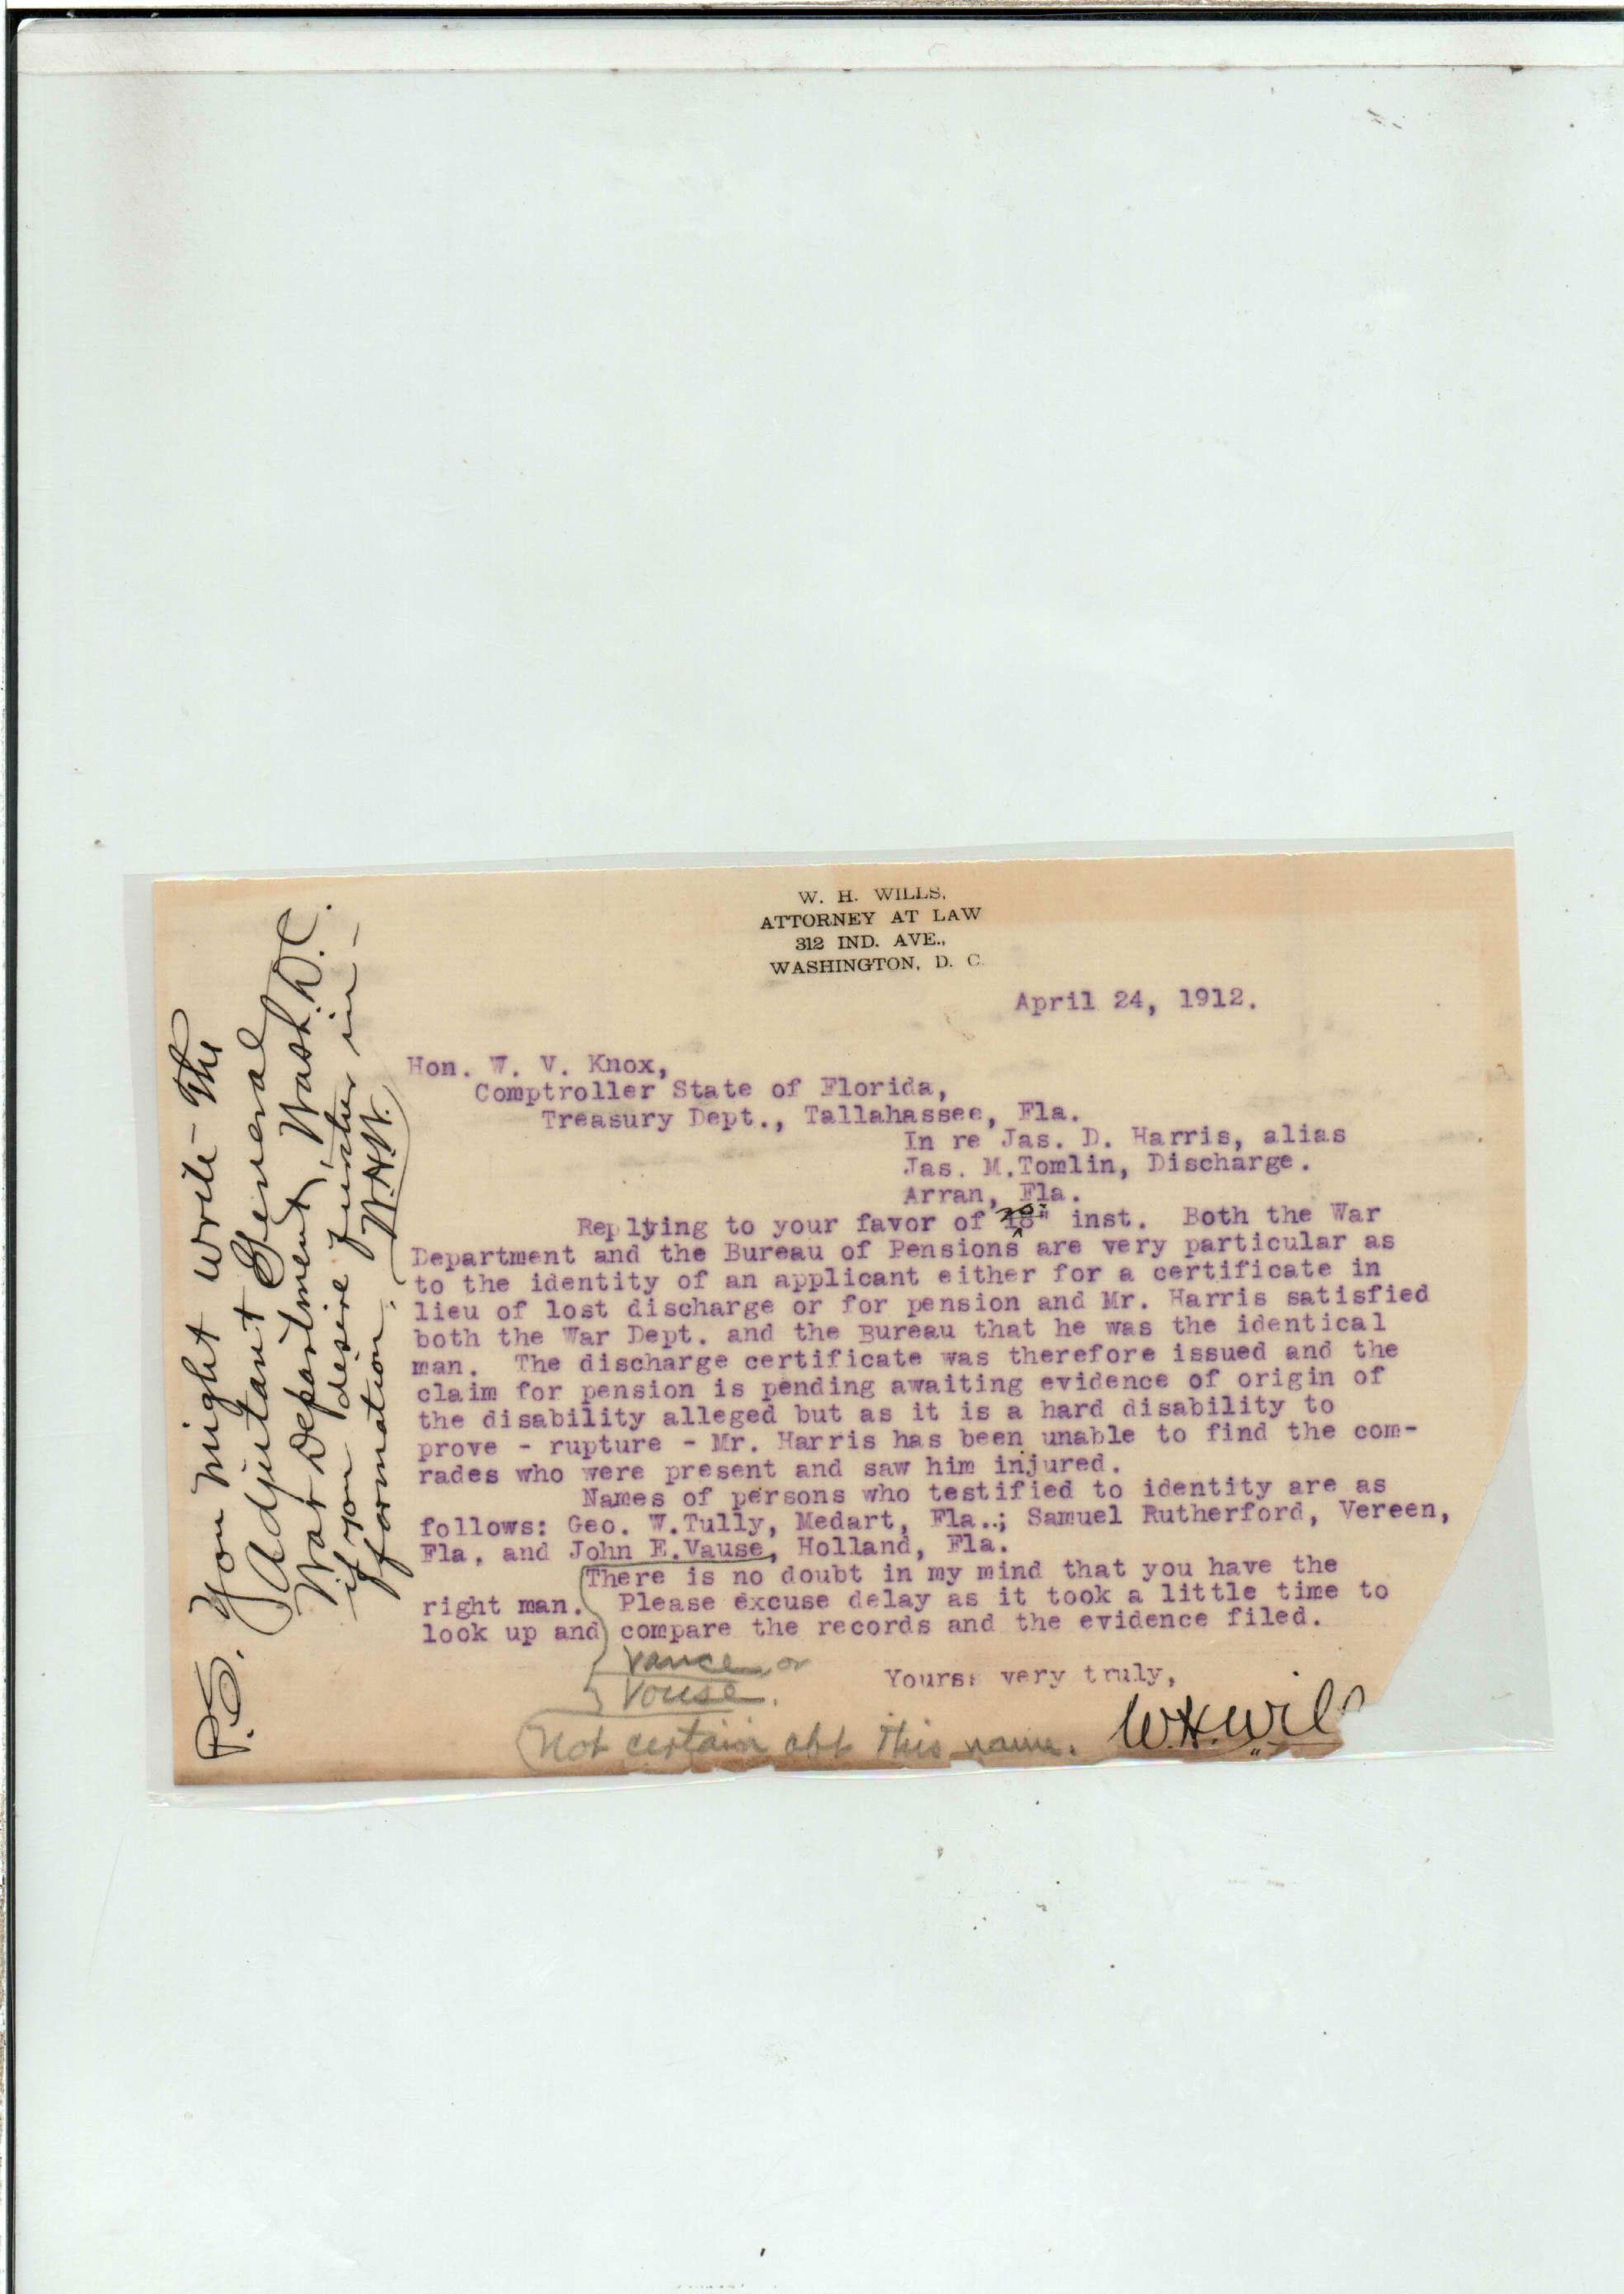 W. H. WILLS,
ATTORNEY AT LAW
312 IND. AVE.,
WASHINGTON, D. C.
April 24, 1912.
Hon. W. V. Knox,
Comptroller State of Florida,
Treasury Dept., Tallahassee, Fla.
In re Jas. D. Harris, alias
Jas. M.Tomlin, Discharge.
Arran, Fla.
Replying to your favor of 20" inst. Both the War
Department and the Bureau of Pensions are very particular as
to the identity of an applicant either for a certificate in
lieu of lost discharge or for pension and Mr. Harris satisfied
both the War Dept. and the Bureau that he was the identical
man. The discharge certificate was therefore issued and the
claim for pension is pending awaiting evidence of origin of
the disability alleged but as it is a hard disability to
prove - rupture - Mr. Harris has been unable to find the com-
rades who were present and saw him injured.
Names of persons who testified to identity are as
follows: Geo. W.Tully, Medart, Fla..; Samuel Rutherford, Vereen,
Fla, and John E.Vause, Holland, Fla.
There is no doubt in my mind that you have the
right man. Please excuse delay as it took a little time to
look up and compare the records and the evidence filed.
Vance or
Vouse.
Not certain abt this name.
Yours: very truly,
W.H.Wil
P.S. You might write - The
Adjutant General
War Department, Wash. D.C.
if you desire further in-
formation. W.H.W.